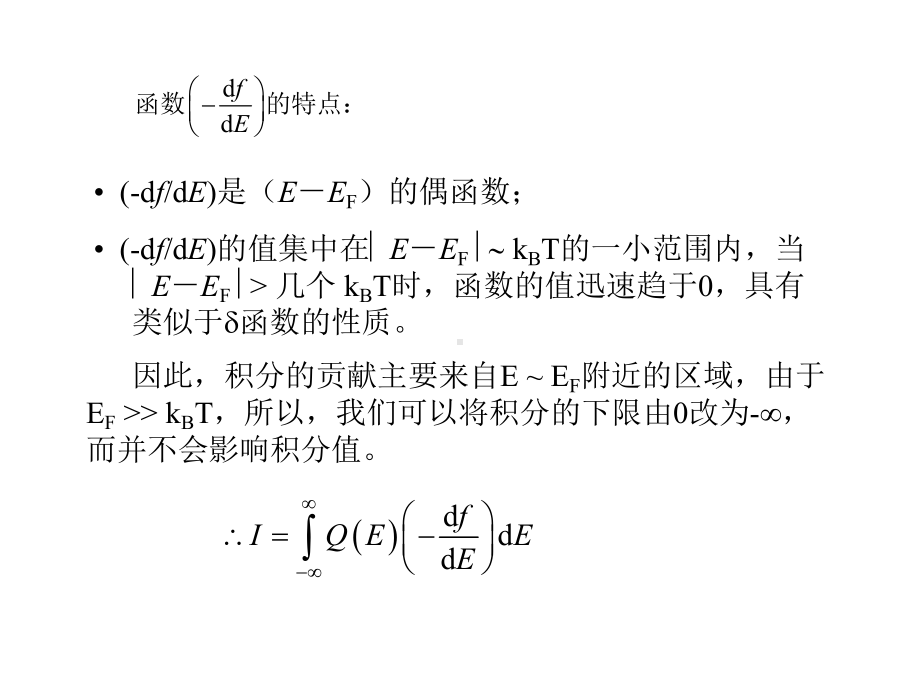 函数(−df/dE)的特点：
• (-df/dE)是（E－E_F）的偶函数；
• (-df/dE)的值集中在| E－E_F| ~ k_BT的一小范围内，当
| E－E_F| > 几个 k_BT时，函数的值迅速趋于0，具有
类似于δ函数的性质。
因此，积分的贡献主要来自E ~ E_F附近的区域，由于
E_F >> k_BT，所以，我们可以将积分的下限由0改为-∞，
而并不会影响积分值。
∴ I = ∫_{−∞}^{∞} Q(E)(−df/dE)dE